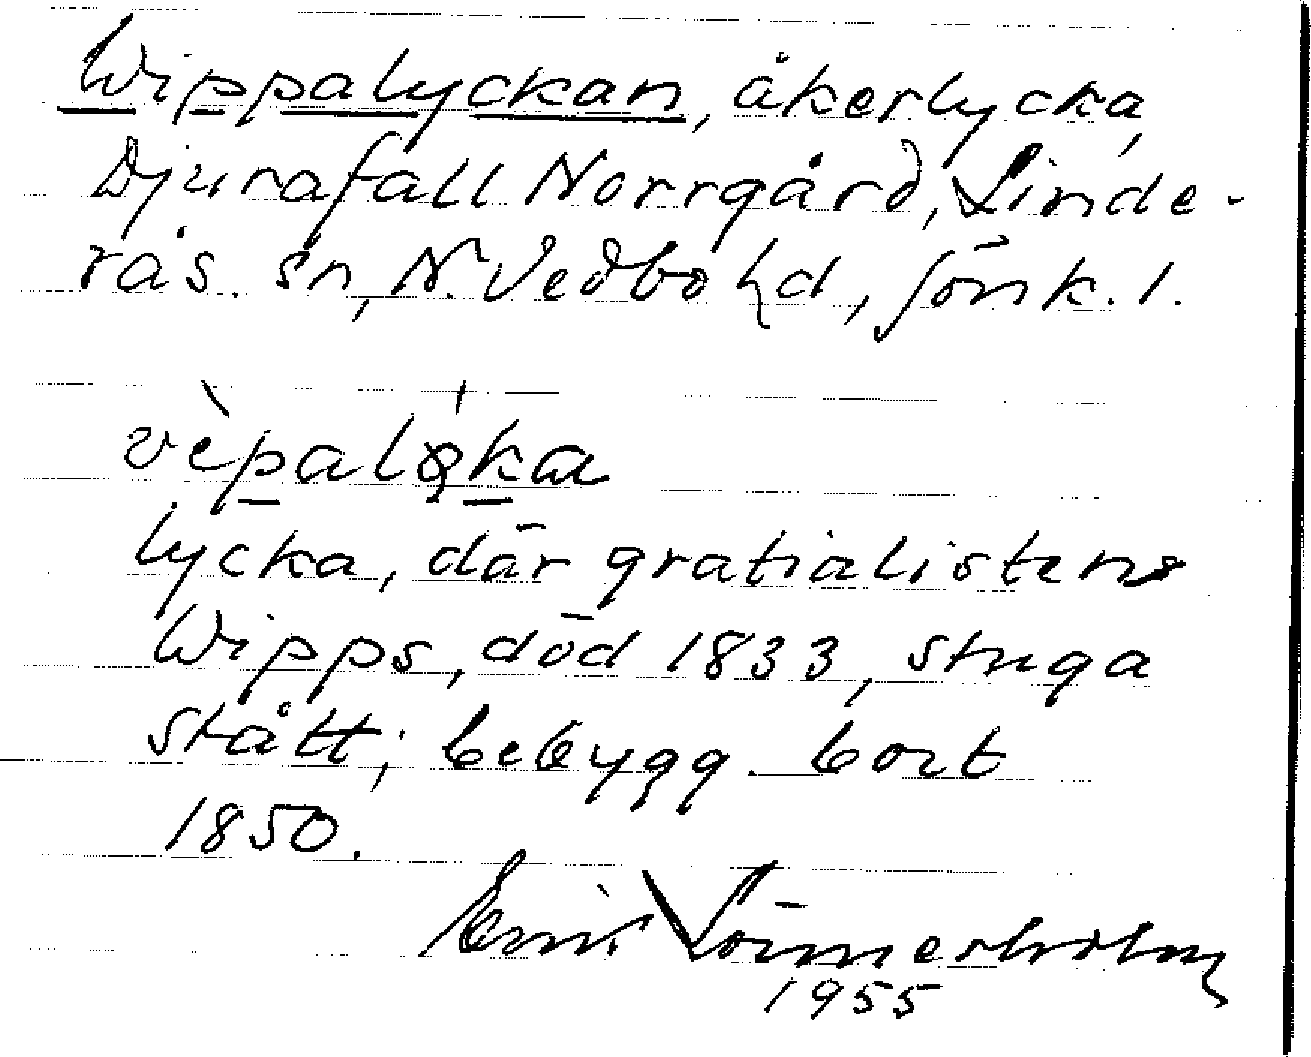 Wippalyckan, åkerlycka,
Djurafall Norrgård, Linde-
rås. sn, N. Vedbo hd, Jönk. l.
vèpalyka
lycka, där gratialistens
Wipps, död 1833, stuga
stått; bebygg. bort
1850.
1955